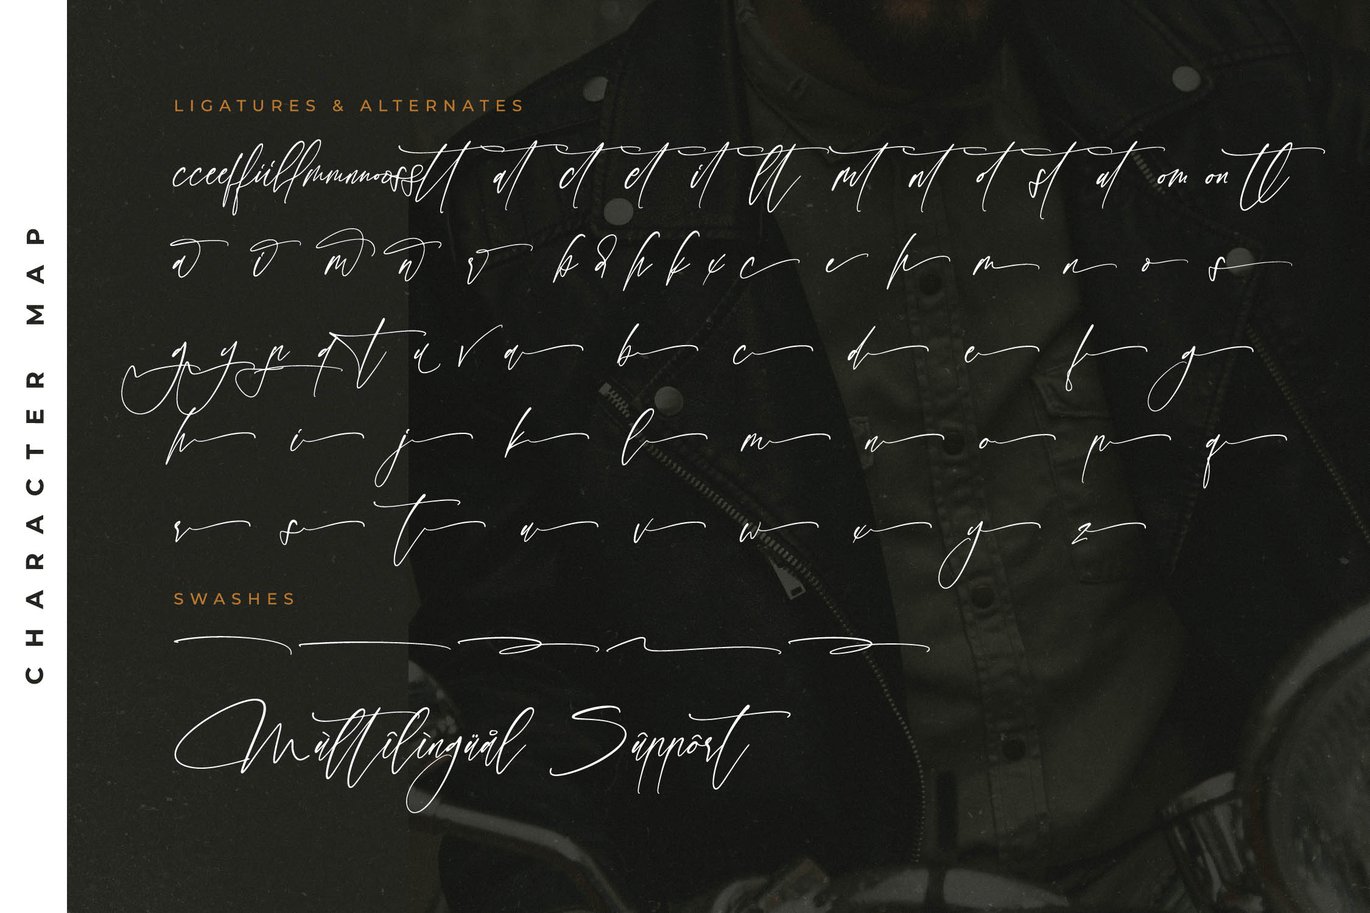 CHARACTER MAP
LIGATURES & ALTERNATES
cc ee ff ii ll ff mm nn oo ss tt at ct et it lt mt nt ot st ut om on tl
a o m n r b d h k x c e h m n o s
g y p q t u v a b c d e f g
h i j k l m n o p q
r s t u v w x y z
SWASHES
Mùltîlìngüål Sûppôrt